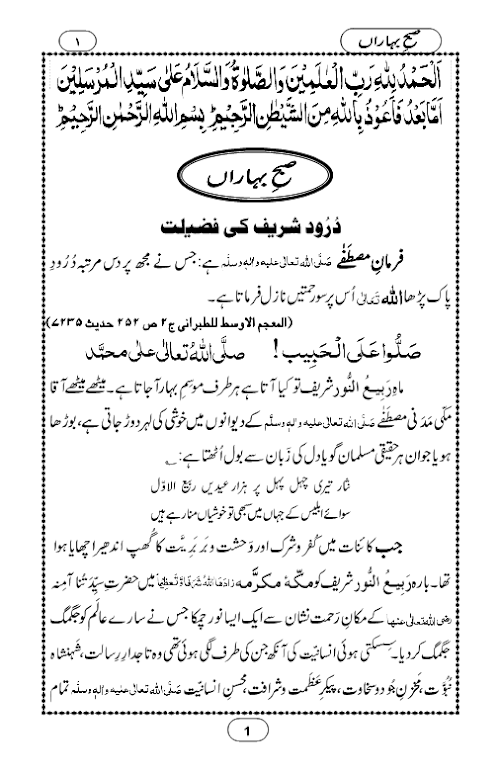 صبحِ بہاراں
۱
اَلْحَمْدُ لِلّٰهِ رَبِّ الْعٰلَمِيْنَ وَالصَّلٰوةُ وَالسَّلَامُ عَلٰى سَيِّدِ الْمُرْسَلِيْنَ
اَمَّا بَعْدُ فَاَعُوْذُ بِاللّٰهِ مِنَ الشَّيْطٰنِ الرَّجِيْمِ ؕ بِسْمِ اللّٰهِ الرَّحْمٰنِ الرَّحِيْمِ ؕ
صبحِ بہاراں
دُرُود شریف کی فضیلت
فرمانِ مصطَفٰے صَلَّى اللہ تعالٰی علیہ و اٰلہٖ وسلَّم ہے: جس نے مجھ پر دس مرتبہ دُرُودِ
پاک پڑھا اللہ تَعَالٰی اُس پر سو رحمتیں نازل فرماتا ہے۔
(المعجم الاوسط للطبرانی ج۲ ص ۲۵۲ حدیث ۷۲۳۵)
صَلُّوا عَلَى الْحَبِيب ! صلَّى اللهُ تعالٰى علٰى محمَّد
ماہِ رَبِیعُ النُّور شریف تو کیا آتا ہے ہر طرف موسِمِ بہار آ جاتا ہے۔ میٹھے میٹھے آقا
مکّی مَدَنی مصطَفٰے صَلَّى اللہ تعالٰی علیہ و اٰلہٖ وسلَّم کے دیوانوں میں خوشی کی لہر دوڑ جاتی ہے، بوڑھا
ہو یا جوان ہر حقیقی مسلمان گویا دل کی زَبان سے بول اُٹھتا ہے: ؎
نثار تیری چہل پہل پر ہزار عیدیں ربیعُ الاوّل
سوائے ابلیس کے جہاں میں سبھی تو خوشیاں منا رہے ہیں
جب کائنات میں کُفر و شرک اور وَحشت و بَربَرِیَّت کا گُھپ اندھیرا چھایا ہوا
تھا۔ بارہ رَبِیعُ النُّور شریف کو مکّۂ مکرَّمہ زادَھَا اللہُ شَرَفًا وَّ تَعظِیمًا میں حضرتِ سیِّدَتُنا آمِنہ
رضی اللہ تعالٰی عنہا کے مکانِ رَحمت نشان سے ایک ایسا نور چمکا جس نے سارے عالَم کو جگمگ
جگمگ کر دیا۔ سِسکتی ہوئی انسانیّت کی آنکھ جن کی طرف لگی ہوئی تھی وہ تاجدارِ رسالت، شَہنشاہِ
نُبُوَّت، مَخزنِ جُود و سخاوت، پیکرِ عَظَمت و شرافت، محسنِ انسانیّت صَلَّى اللہ تعالٰی علیہ و اٰلہٖ وسلَّم تمام
1